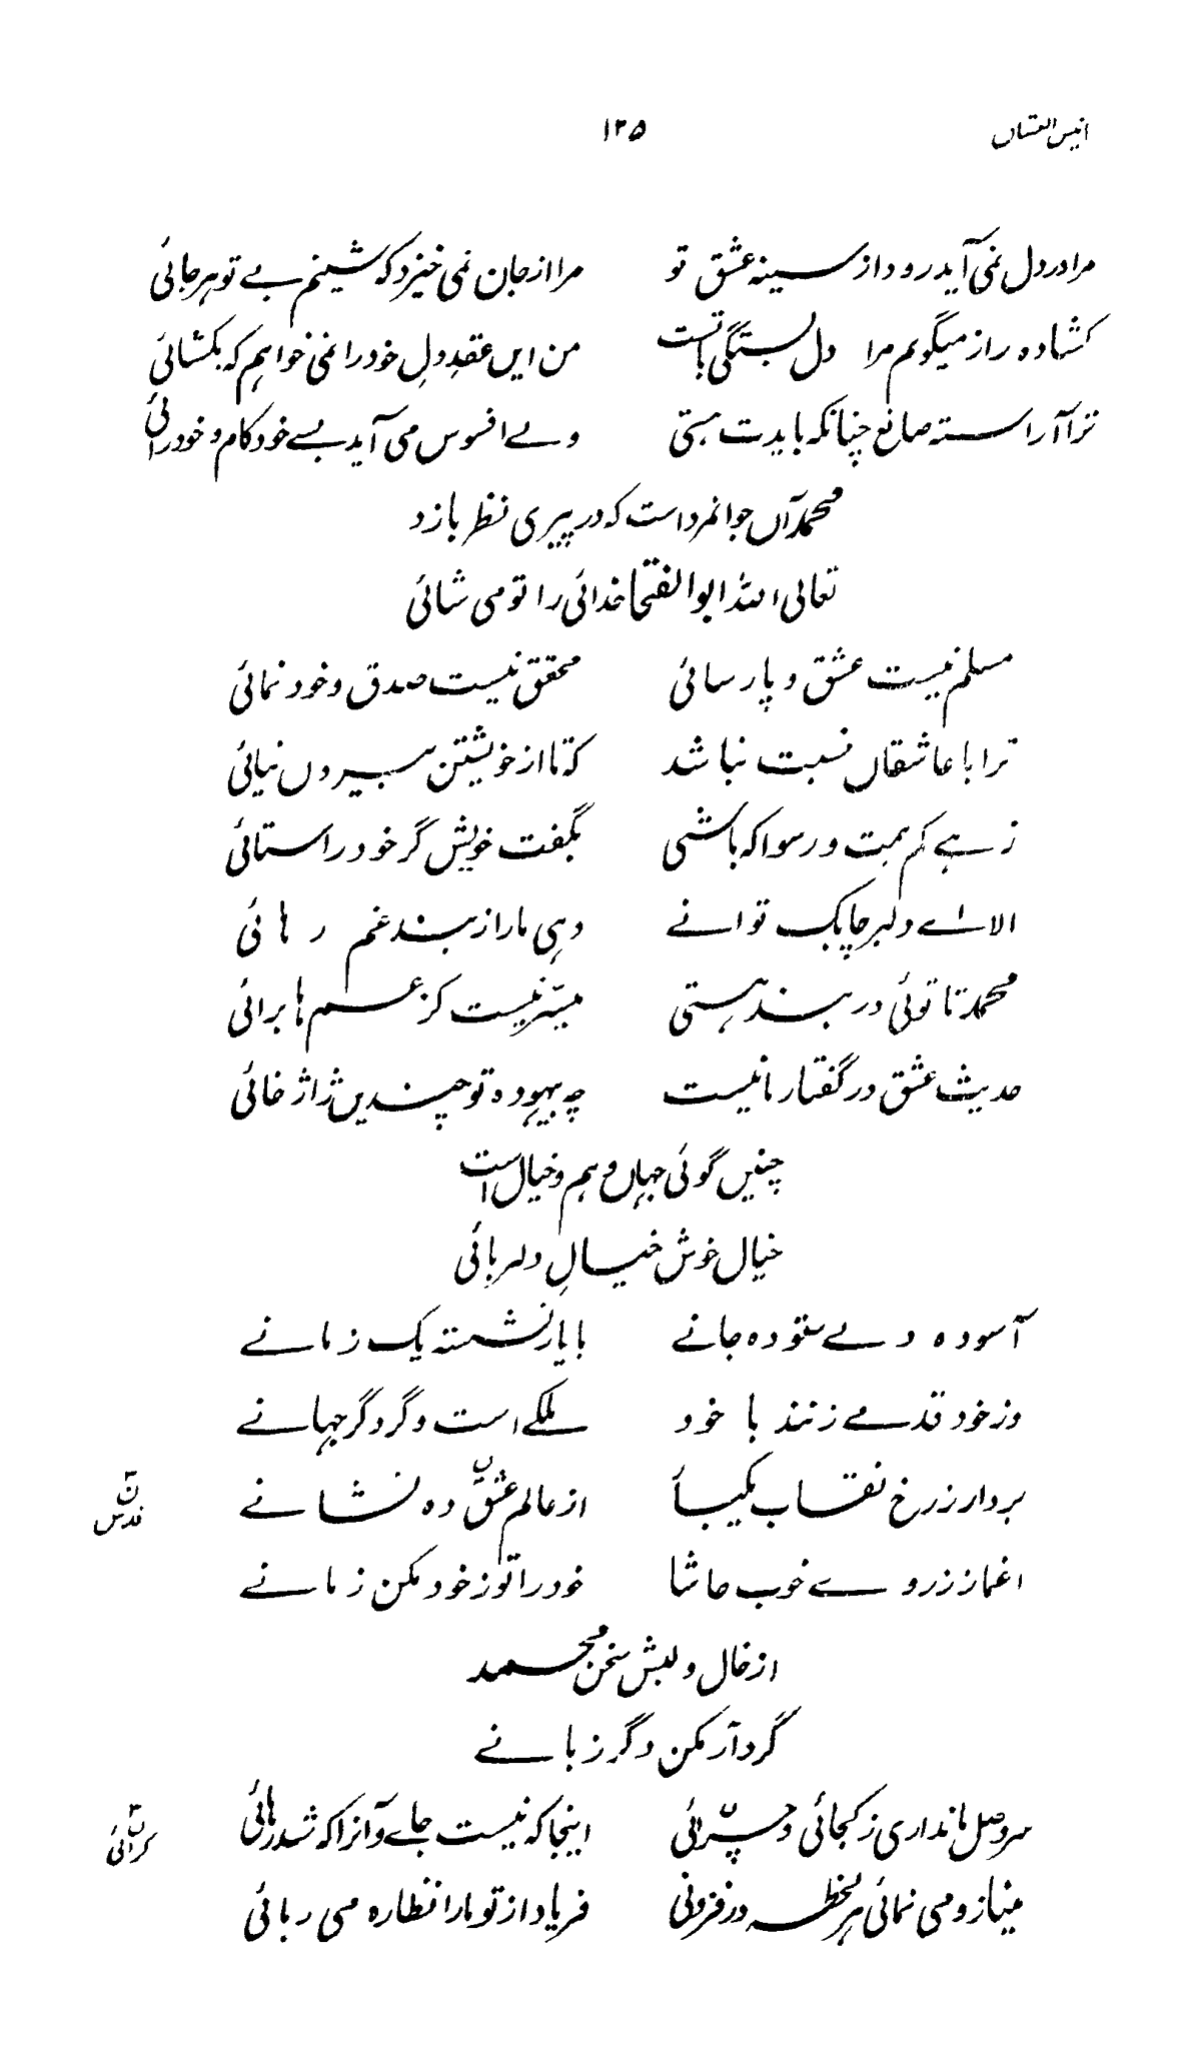 انیس العشاق ۱۲۵
مرا در دل نمی آید رود از سینه عشق تو مرا از جان نمی خیزد که نشینم بے تو هر جائی
کشاده راز میگویم مرا دل بستگی باتست من ایں عقدِ دلِ خود را نمی خواهم که بکشائی
ترا آراسته صانع چنانکه بایدت هستی ولے افسوس می آید بسے خود کام و خود رائی
محمد آں جوانمرد است که در پیری نظر بازد
تعالی الله ابو الفتحا خدائی را تو می شائی
مسلم نیست عشق و پارسائی محقق نیست صدق و خود نمائی
ترا با عاشقاں نسبت نباشد که تا از خویشتن بیروں نیائی
زهے کم همت و رسوا که باشی بگفت خویش گر خود را ستائی
الا اے دلبر چابک توانے دهی ما را ز بند غم رهائی
محمد تا توئی در بند هستی میسّر نیست کز غمها برائی
حدیث عشق در گفتار ما نیست چه بیهوده تو چندیں ژاژ خائی
چنیں گوئی جهاں وهم و خیال است
خیال خوش خیالِ دلربائی
آسوده دلے ستوده جانے با یار نشسته یک زمانے
وز خود قدمے زنند با خود ملکے است و گر دگر جهانے
بردار ز رخ نقاب یکبار از عالم عشق ده نشانے
ن
قدس
اغماز ز روے خوب حاشا خود را تو ز خود مکن زمانے
از خال و لبش سخن محمد
گرد آر مکن دگر زبانے
سر وصل ما نداری ز کجائی و چرائی اینجا که نیست جاے و آنرا که شد رهائی
ن
کرائی
مینازو می نمائی هر لحظه در فزونی فریاد از تو ما را نظاره می ربائی